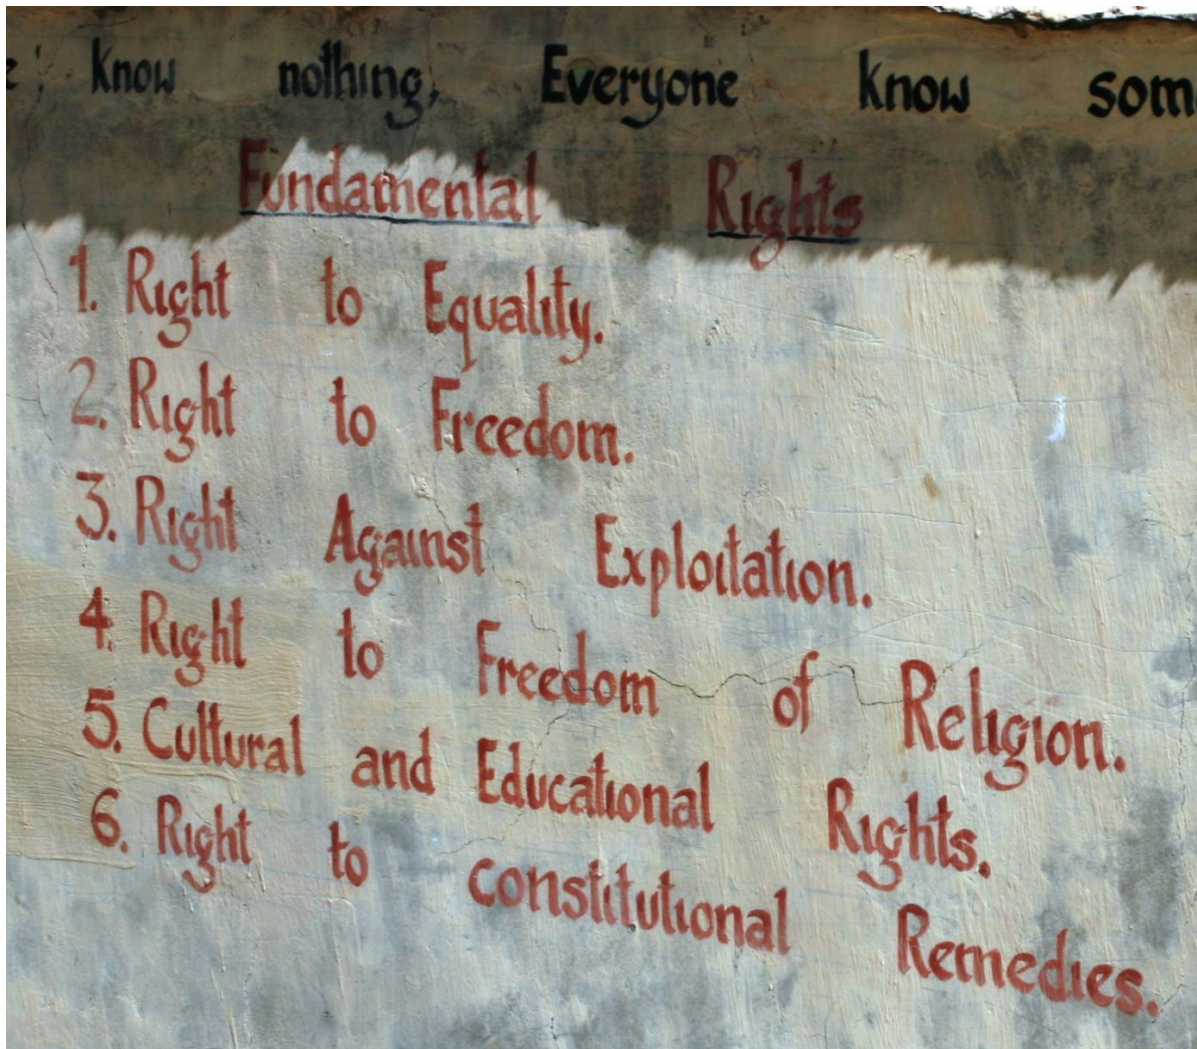 know nothing, Everyone know som
Fundamental Rights
1. Right to Equality.
2. Right to Freedom.
3. Right Against Exploitation.
4. Right to Freedom of Religion.
5. Cultural and Educational Rights.
6. Right to constitutional Remedies.